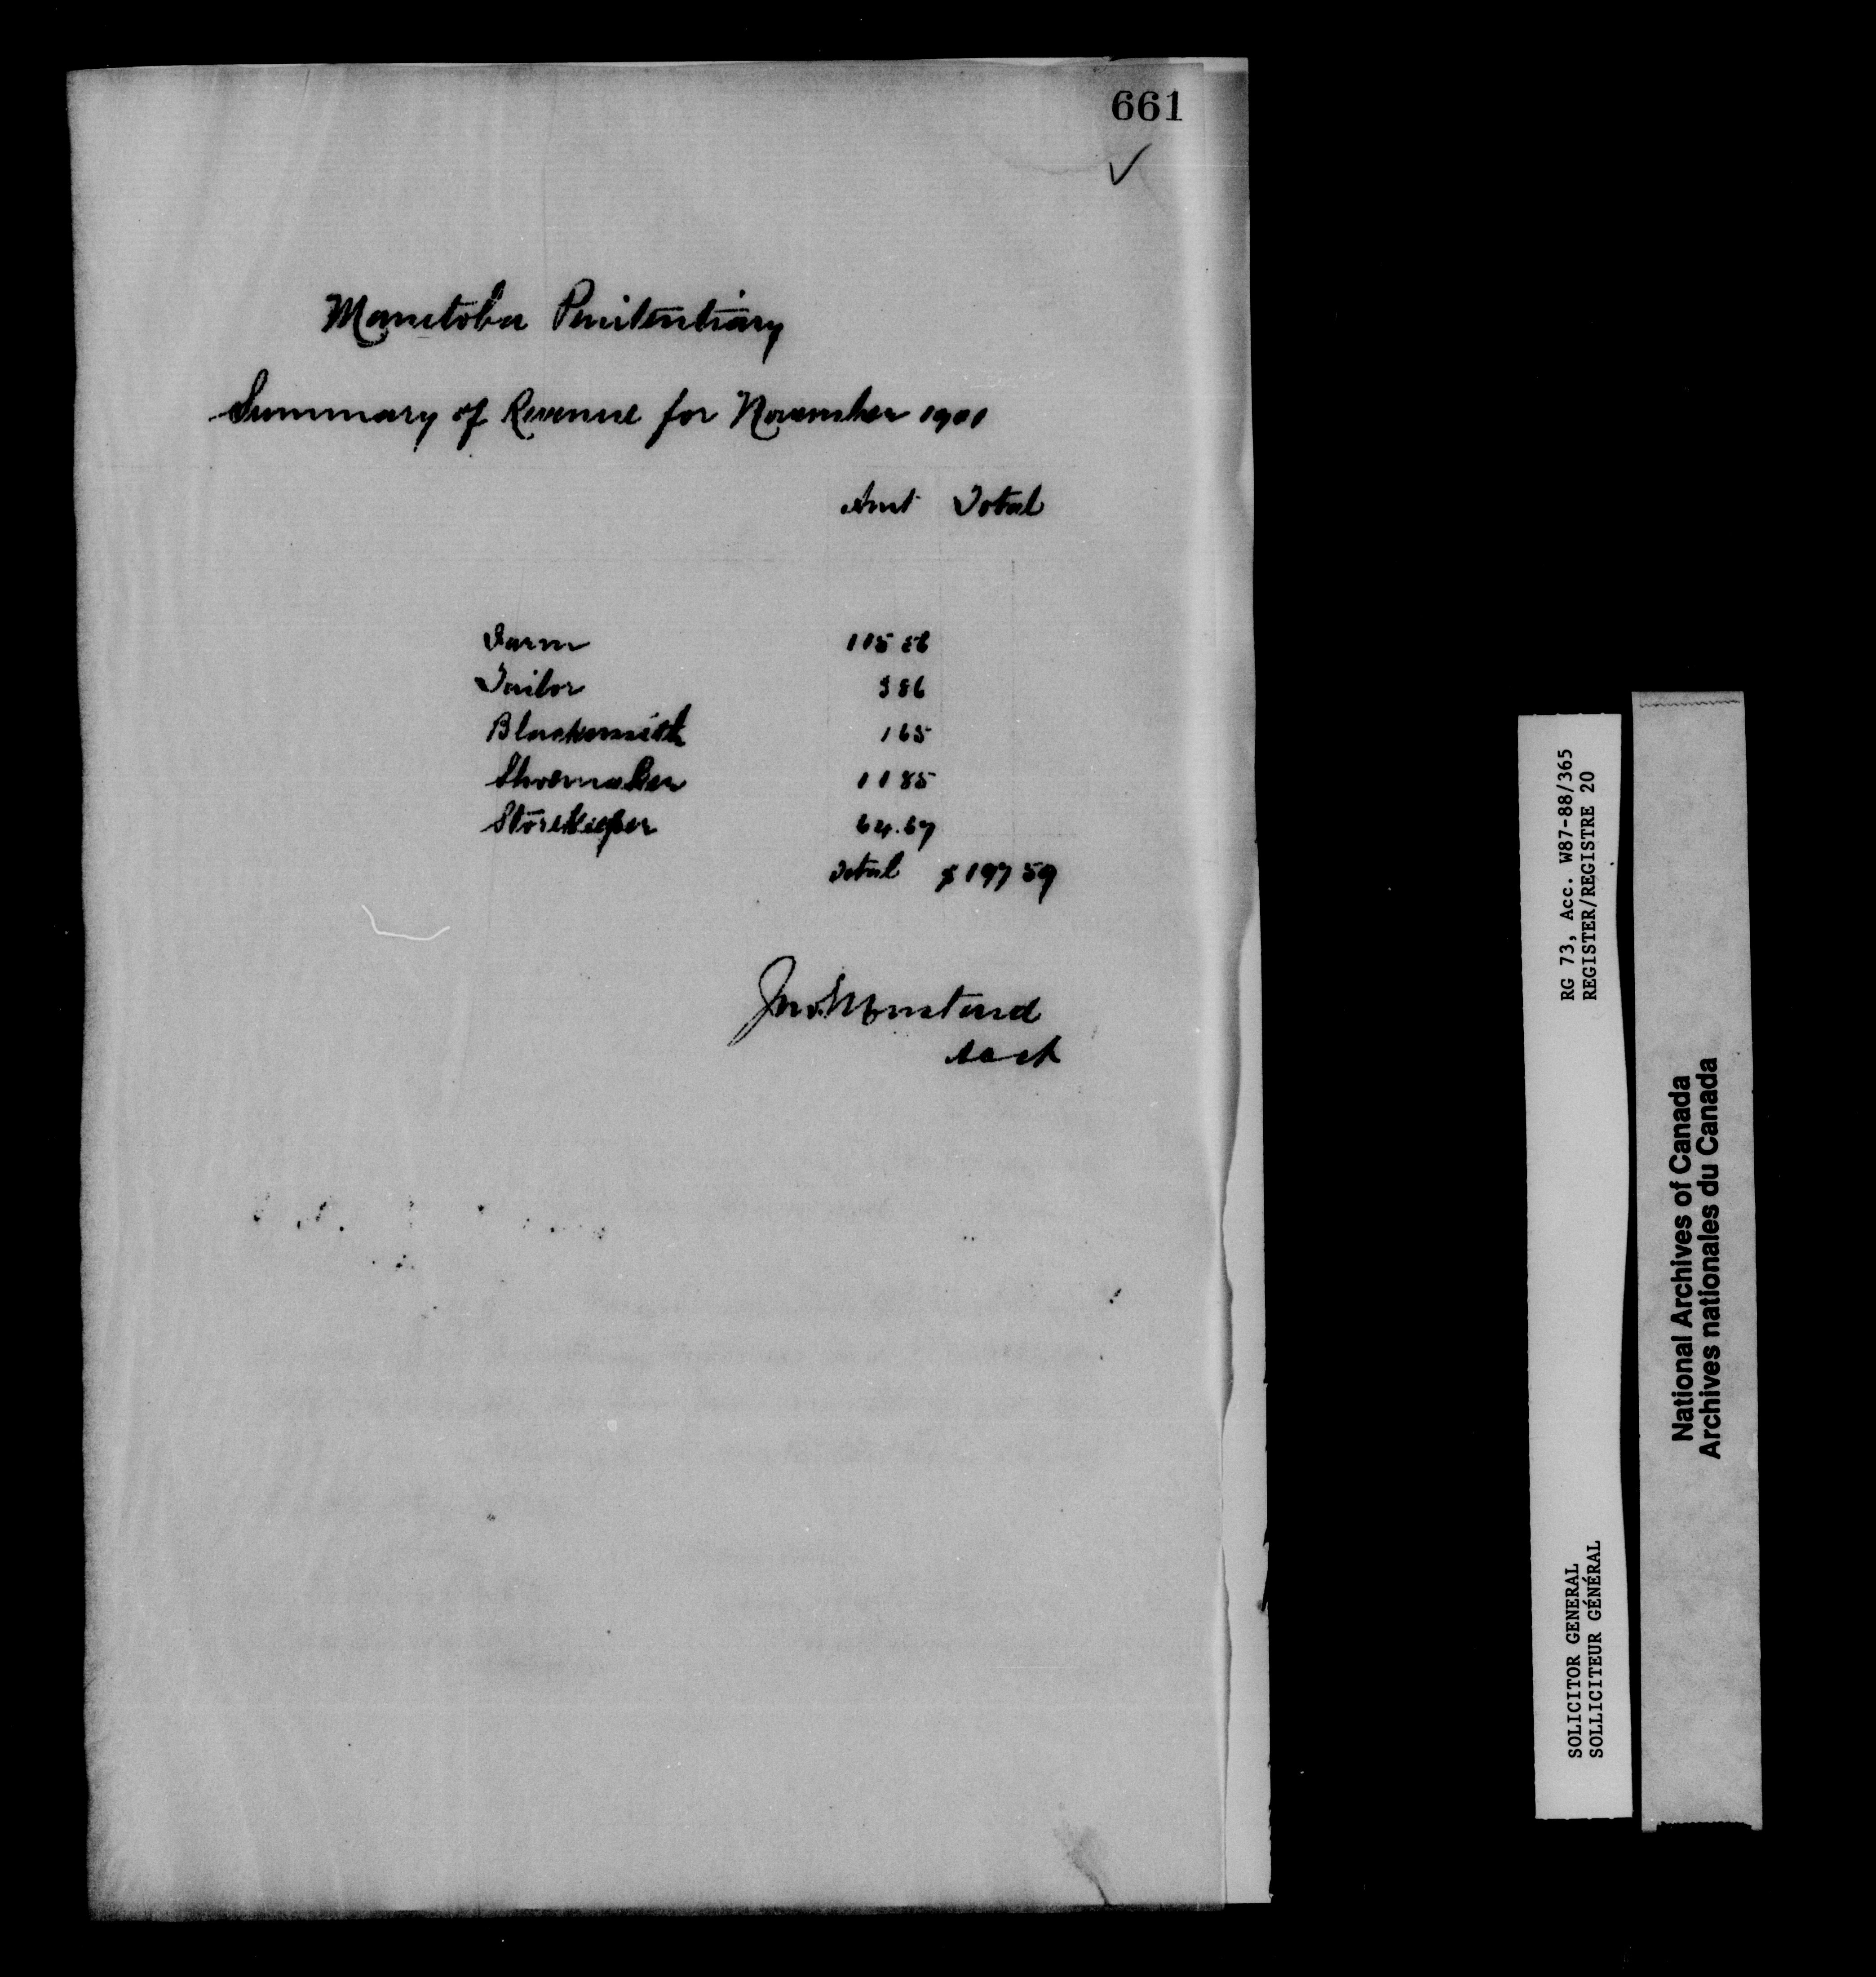 661
Manitoba Penitentiary
Summary of Revenue for November 1901
Amt Total
Farm 115 56
Tailor 3 86
Blacksmith 1 65
Shoemaker 11 85
Storekeeper 64.67
Total $197 59
Jno. Mustard
Acct
RG 73, Acc. W87-88/365
REGISTER/REGISTRE 20
SOLICITOR GENERAL
SOLLICITEUR GÉNÉRAL
National Archives of Canada
Archives nationales du Canada